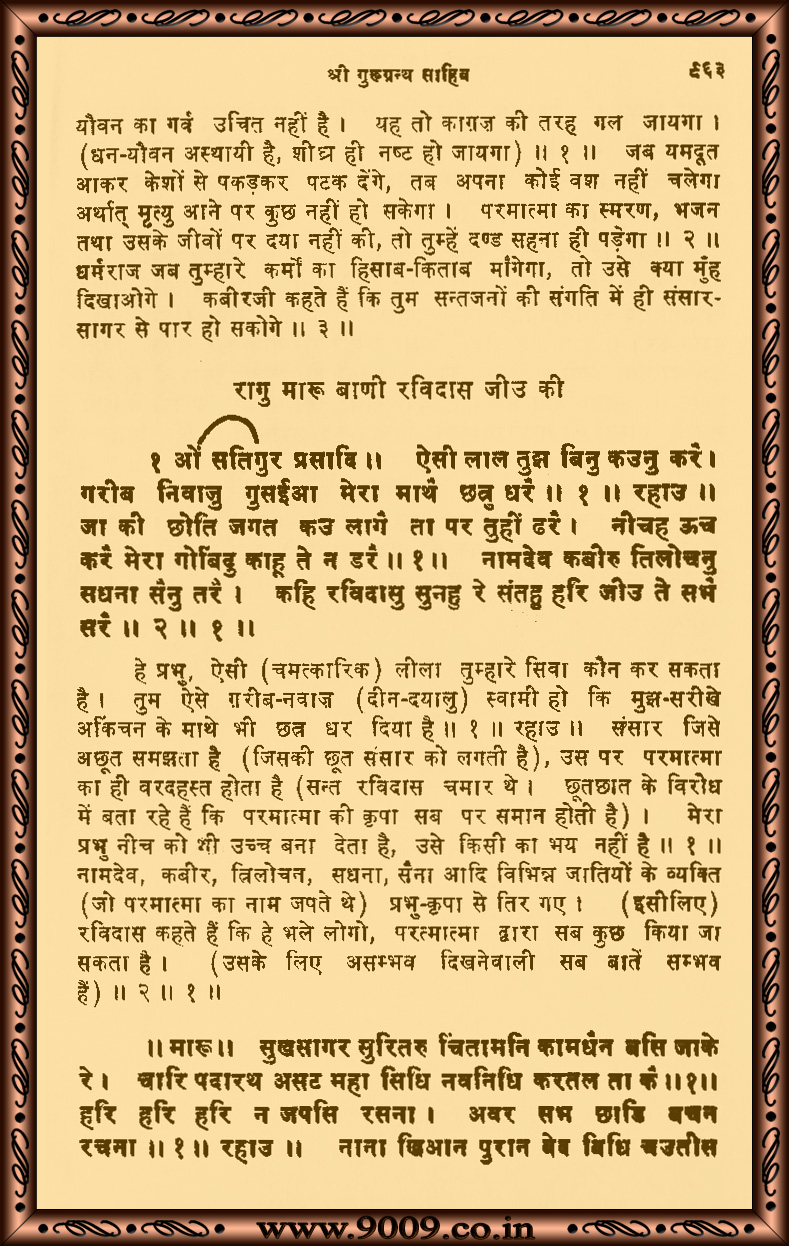 श्री गुरूग्रन्थ साहिब ९६३
यौवन का गर्व उचित नहीं है। यह तो काग़ज़ की तरह गल जायगा।
(धन-यौवन अस्थायी है, शीघ्र ही नष्ट हो जायगा) ॥ १ ॥ जब यमदूत
आकर केशों से पकड़कर पटक देंगे, तब अपना कोई वश नहीं चलेगा
अर्थात् मृत्यु आने पर कुछ नहीं हो सकेगा। परमात्मा का स्मरण, भजन
तथा उसके जीवों पर दया नहीं की, तो तुम्हें दण्ड सहना ही पड़ेगा ॥ २ ॥
धर्मराज जब तुम्हारे कर्मों का हिसाब-किताब माँगेगा, तो उसे क्या मुँह
दिखाओगे। कबीरजी कहते हैं कि तुम सन्तजनों की संगति में ही संसार-
सागर से पार हो सकोगे ॥ ३ ॥
रागु मारू बाणी रविदास जीउ की
१ ओं सतिगुर प्रसादि ॥ ऐसी लाल तुझ बिनु कउनु करै।
गरीब निवाजु गुसईआ मेरा माथै छत्रु धरै ॥ १ ॥ रहाउ ॥
जा की छोति जगत कउ लागै ता पर तुहीं ढरै। नीचह ऊच
करै मेरा गोबिंदु काहू ते न डरै ॥ १ ॥ नामदेव कबीरु तिलोचनु
सधना सैनु तरै। कहि रविदासु सुनहु रे संतहु हरि जीउ ते सभै
सरै ॥ २ ॥ १ ॥
हे प्रभु, ऐसी (चमत्कारिक) लीला तुम्हारे सिवा कौन कर सकता
है। तुम ऐसे ग़रीब-नवाज़ (दीन-दयालु) स्वामी हो कि मुझ-सरीखे
अकिंचन के माथे भी छत्र धर दिया है ॥ १ ॥ रहाउ ॥ संसार जिसे
अछूत समझता है (जिसकी छूत संसार को लगती है), उस पर परमात्मा
का ही वरदहस्त होता है (सन्त रविदास चमार थे। छूतछात के विरोध
में बता रहे हैं कि परमात्मा की कृपा सब पर समान होती है)। मेरा
प्रभु नीच को भी उच्च बना देता है, उसे किसी का भय नहीं है ॥ १ ॥
नामदेव, कबीर, त्रिलोचन, सधना, सैना आदि विभिन्न जातियों के व्यक्ति
(जो परमात्मा का नाम जपते थे) प्रभु-कृपा से तिर गए। (इसीलिए)
रविदास कहते हैं कि हे भले लोगो, परत्मात्मा द्वारा सब कुछ किया जा
सकता है। (उसके लिए असम्भव दिखनेवाली सब बातें सम्भव
हैं) ॥ २ ॥ १ ॥
॥ मारू ॥ सुखसागर सुरितरु चिंतामनि कामधेन बसि जाके
रे। चारि पदारथ असट महा सिधि नवनिधि करतल ता कै ॥१॥
हरि हरि हरि न जपसि रसना। अवर सभ छाडि बचन
रचना ॥ १ ॥ रहाउ ॥ नाना खिआन पुरान बेद बिधि चउतीस
www.9009.co.in